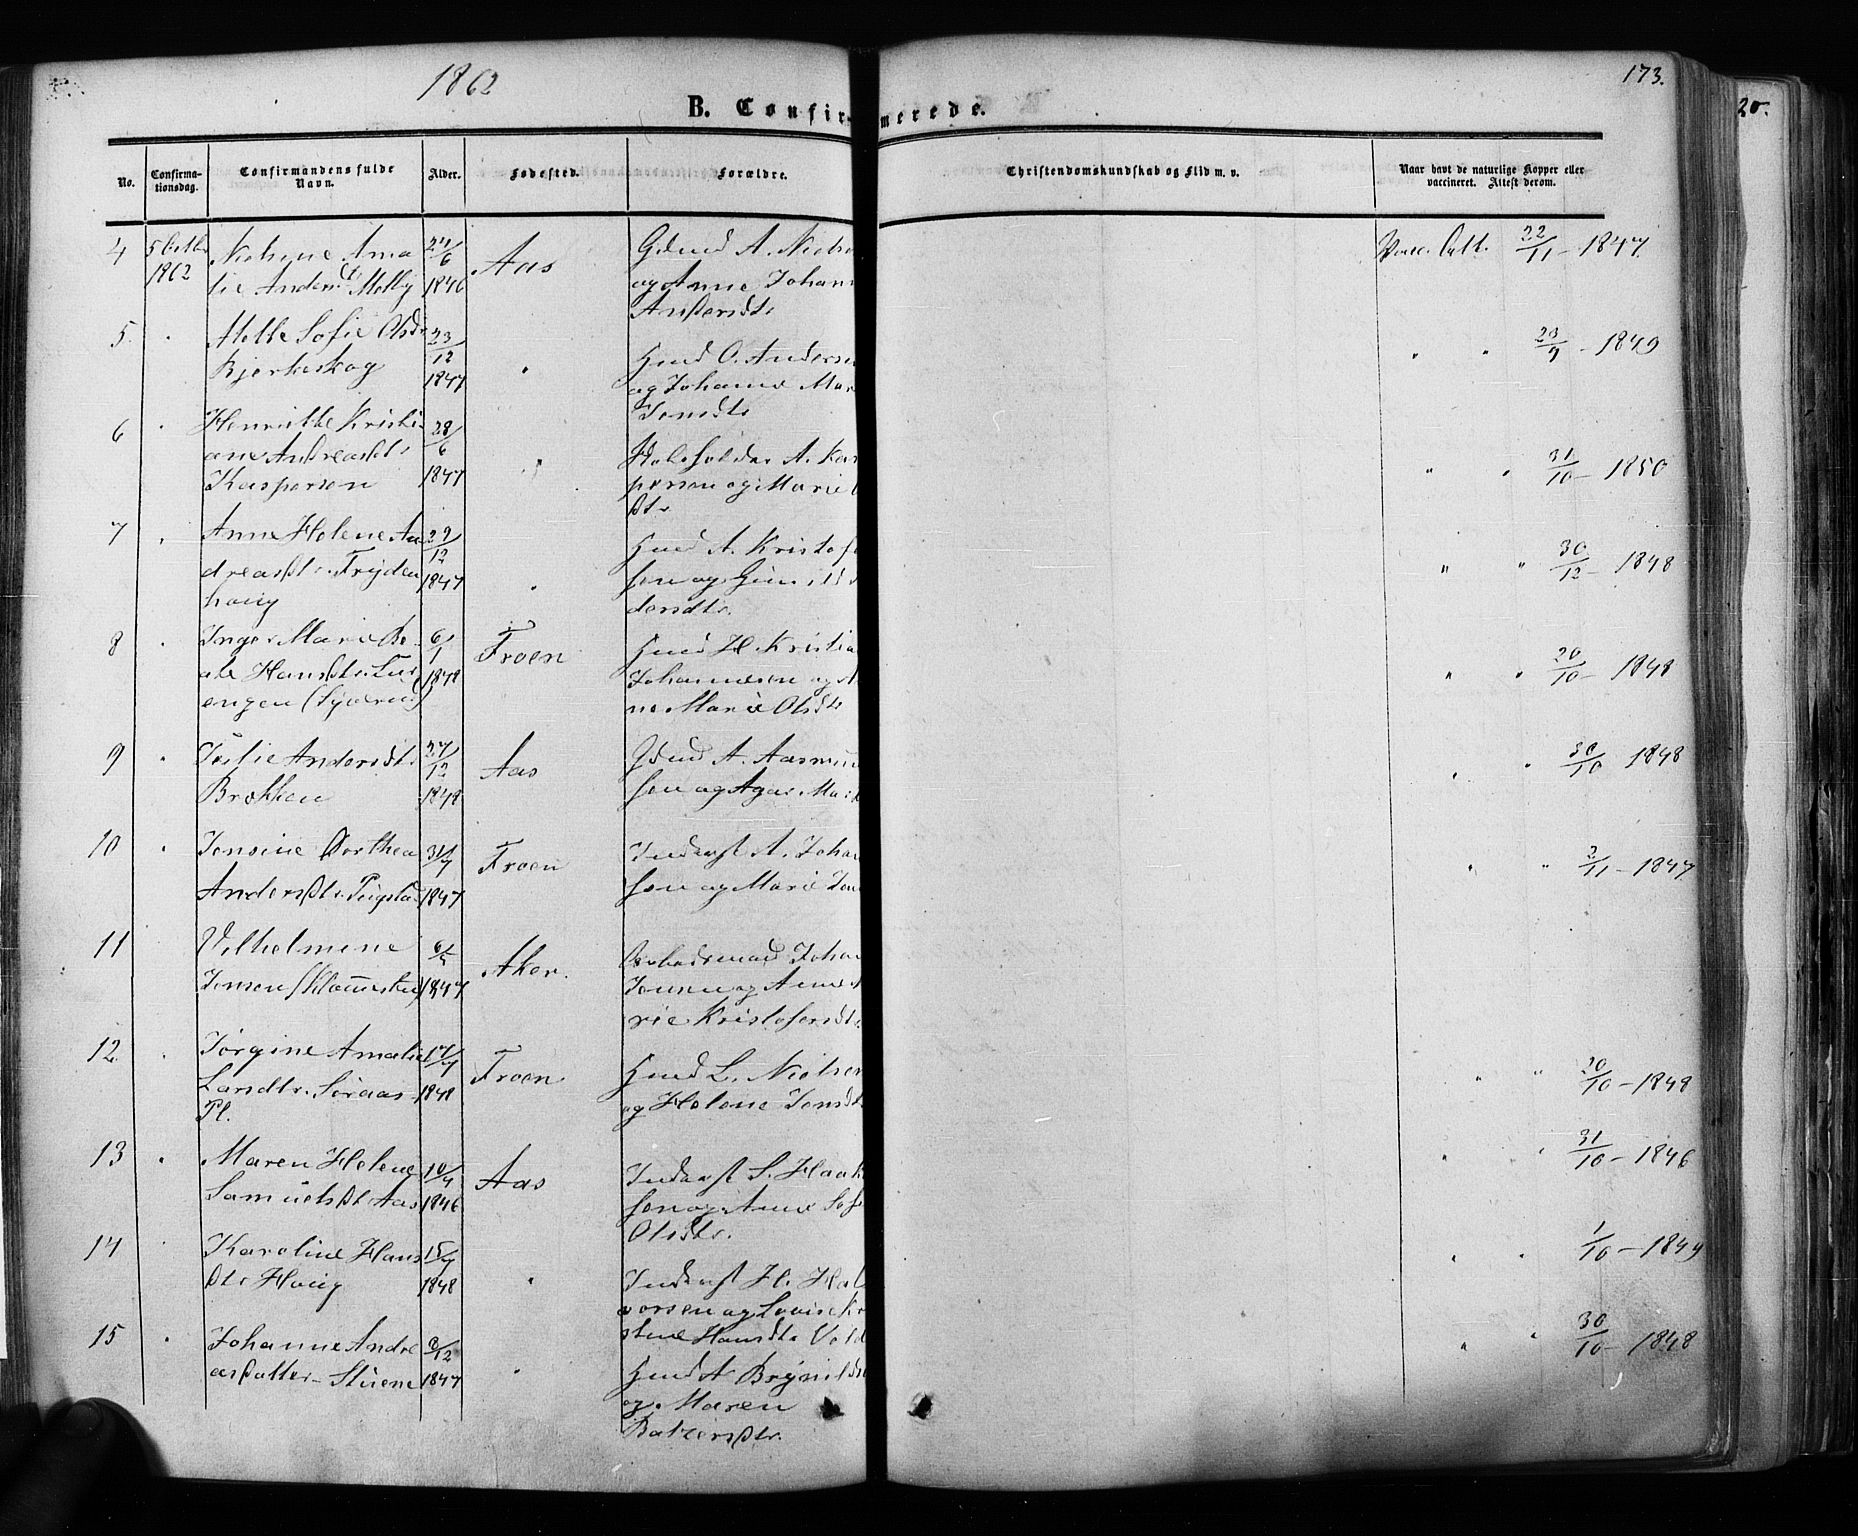 1862
173.
20.
B. Confirmerede.
No.
Confirma-
tionsdag.
Confirmandens fulde
Navn.
Alder.
Fødested.
Forældre.
Christendomskundskab og Flid m. v.
Naar havt de naturlige Kopper eller
vaccineret. Attest derom.
4 5 Octbr 1862
Ama
lie Andersdt Melby
1846
Aas
Gdmd A. Niels
og Anne Johan
Vacc. Att. 22/11 - 1847
5. Sofie Olsdtr
Bjerkeskog
23/12 1847
"
Hmd O. Anders
og Johanne Mar
Jensdtr
" " 23/9 - 1849
6 Henriette Kristi
ane Andreasdtr
Kaspersen
28/6 1847
"
A. Kas
persen og Marie
dtr
" " 31/10 - 1850
7 Anne Helene An
dreasdtr. Fryden
haug
29/12 1847
"
Hmd A. Kristof
sen og
dersdtr.
" " 30/12 - 1848
8 Inger Marie Be
ate Hansdtr.
engen
6/1 1848
Froen
Hmd H. Kristia
Johannesen og A
ne Marie Olsdtr
" " 20/10 - 1848
9 Andersdtr
Brekken
27/12 1848
Aas
Gdmd A. Aasmun
sen og Mar
" " 30/10 - 1848
10 Jensine Dorthea
Andersdtr.
31/7 1847
Froen
Inderst A. Johan
sen og Marie Jen
" " 2/11 - 1847
11 Vilhelmine
Jensen
1847
Aker.
Arbeidsmand Johan
Jensen og Anne
rie Kristofersdtr
12 Jørgine Amalie
Larsdtr. Søraas
Pl.
17/7 1848
Froen
Hmd L. Nielsen
og Helene Jensdtr
" " 20/10 - 1848
13 Maren Helene
Samuelsdt Aas
10/4 1846
Aas
Inderst S. Haak
sen og Anne Sof
Olsdtr.
" " 31/10 - 1846
14 Karoline Hans
dtr Haug
1848
"
Inderst H. Hal
vorsen og Lovise Kr
stine Hansdtr
" " 1/10 - 1849
15 Johanne Andre
asdatter Stuene
1847
"
Hmd A Brynilds
og Maren
" " 30/10 - 1848